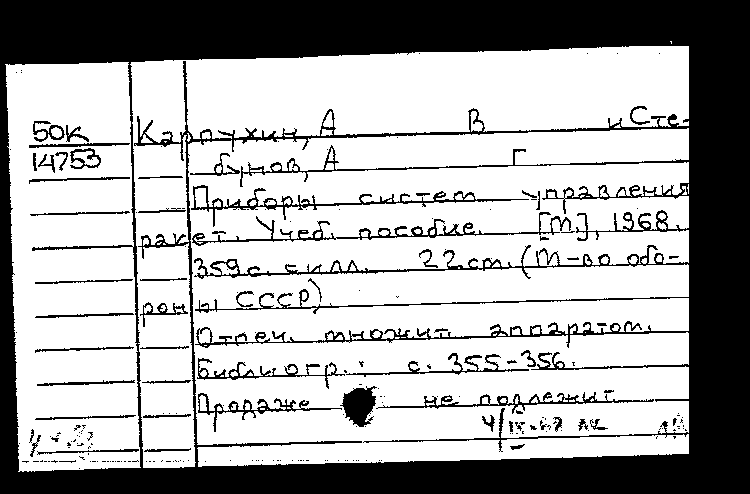 50К Карпухин, А В и Сте-
14753 бунов, А Г
Приборы систем управления
ракет. Учеб. пособие. [М.], 1968.
359 с. с илл. 22 см. (М-во обо-
роны СССР).
Отпеч. множит. аппаратом.
Библиогр.: с. 355-356.
Продаже не подлежит